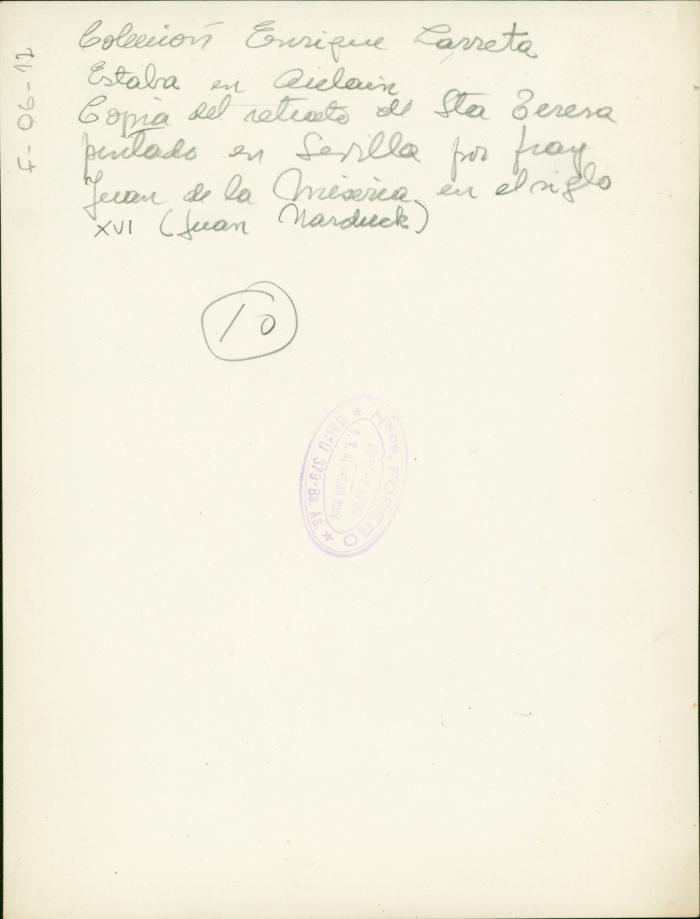 F-06-12
Colección Enrique Larreta
Estaba en Acelain
Copia del retrato de Sta Teresa
pintado en Sevilla por fray
Juan de la Miseria, en el siglo
XVI (Juan Narduck)
10
Hnos. FORERO
MAIPU 379-Bs. As.